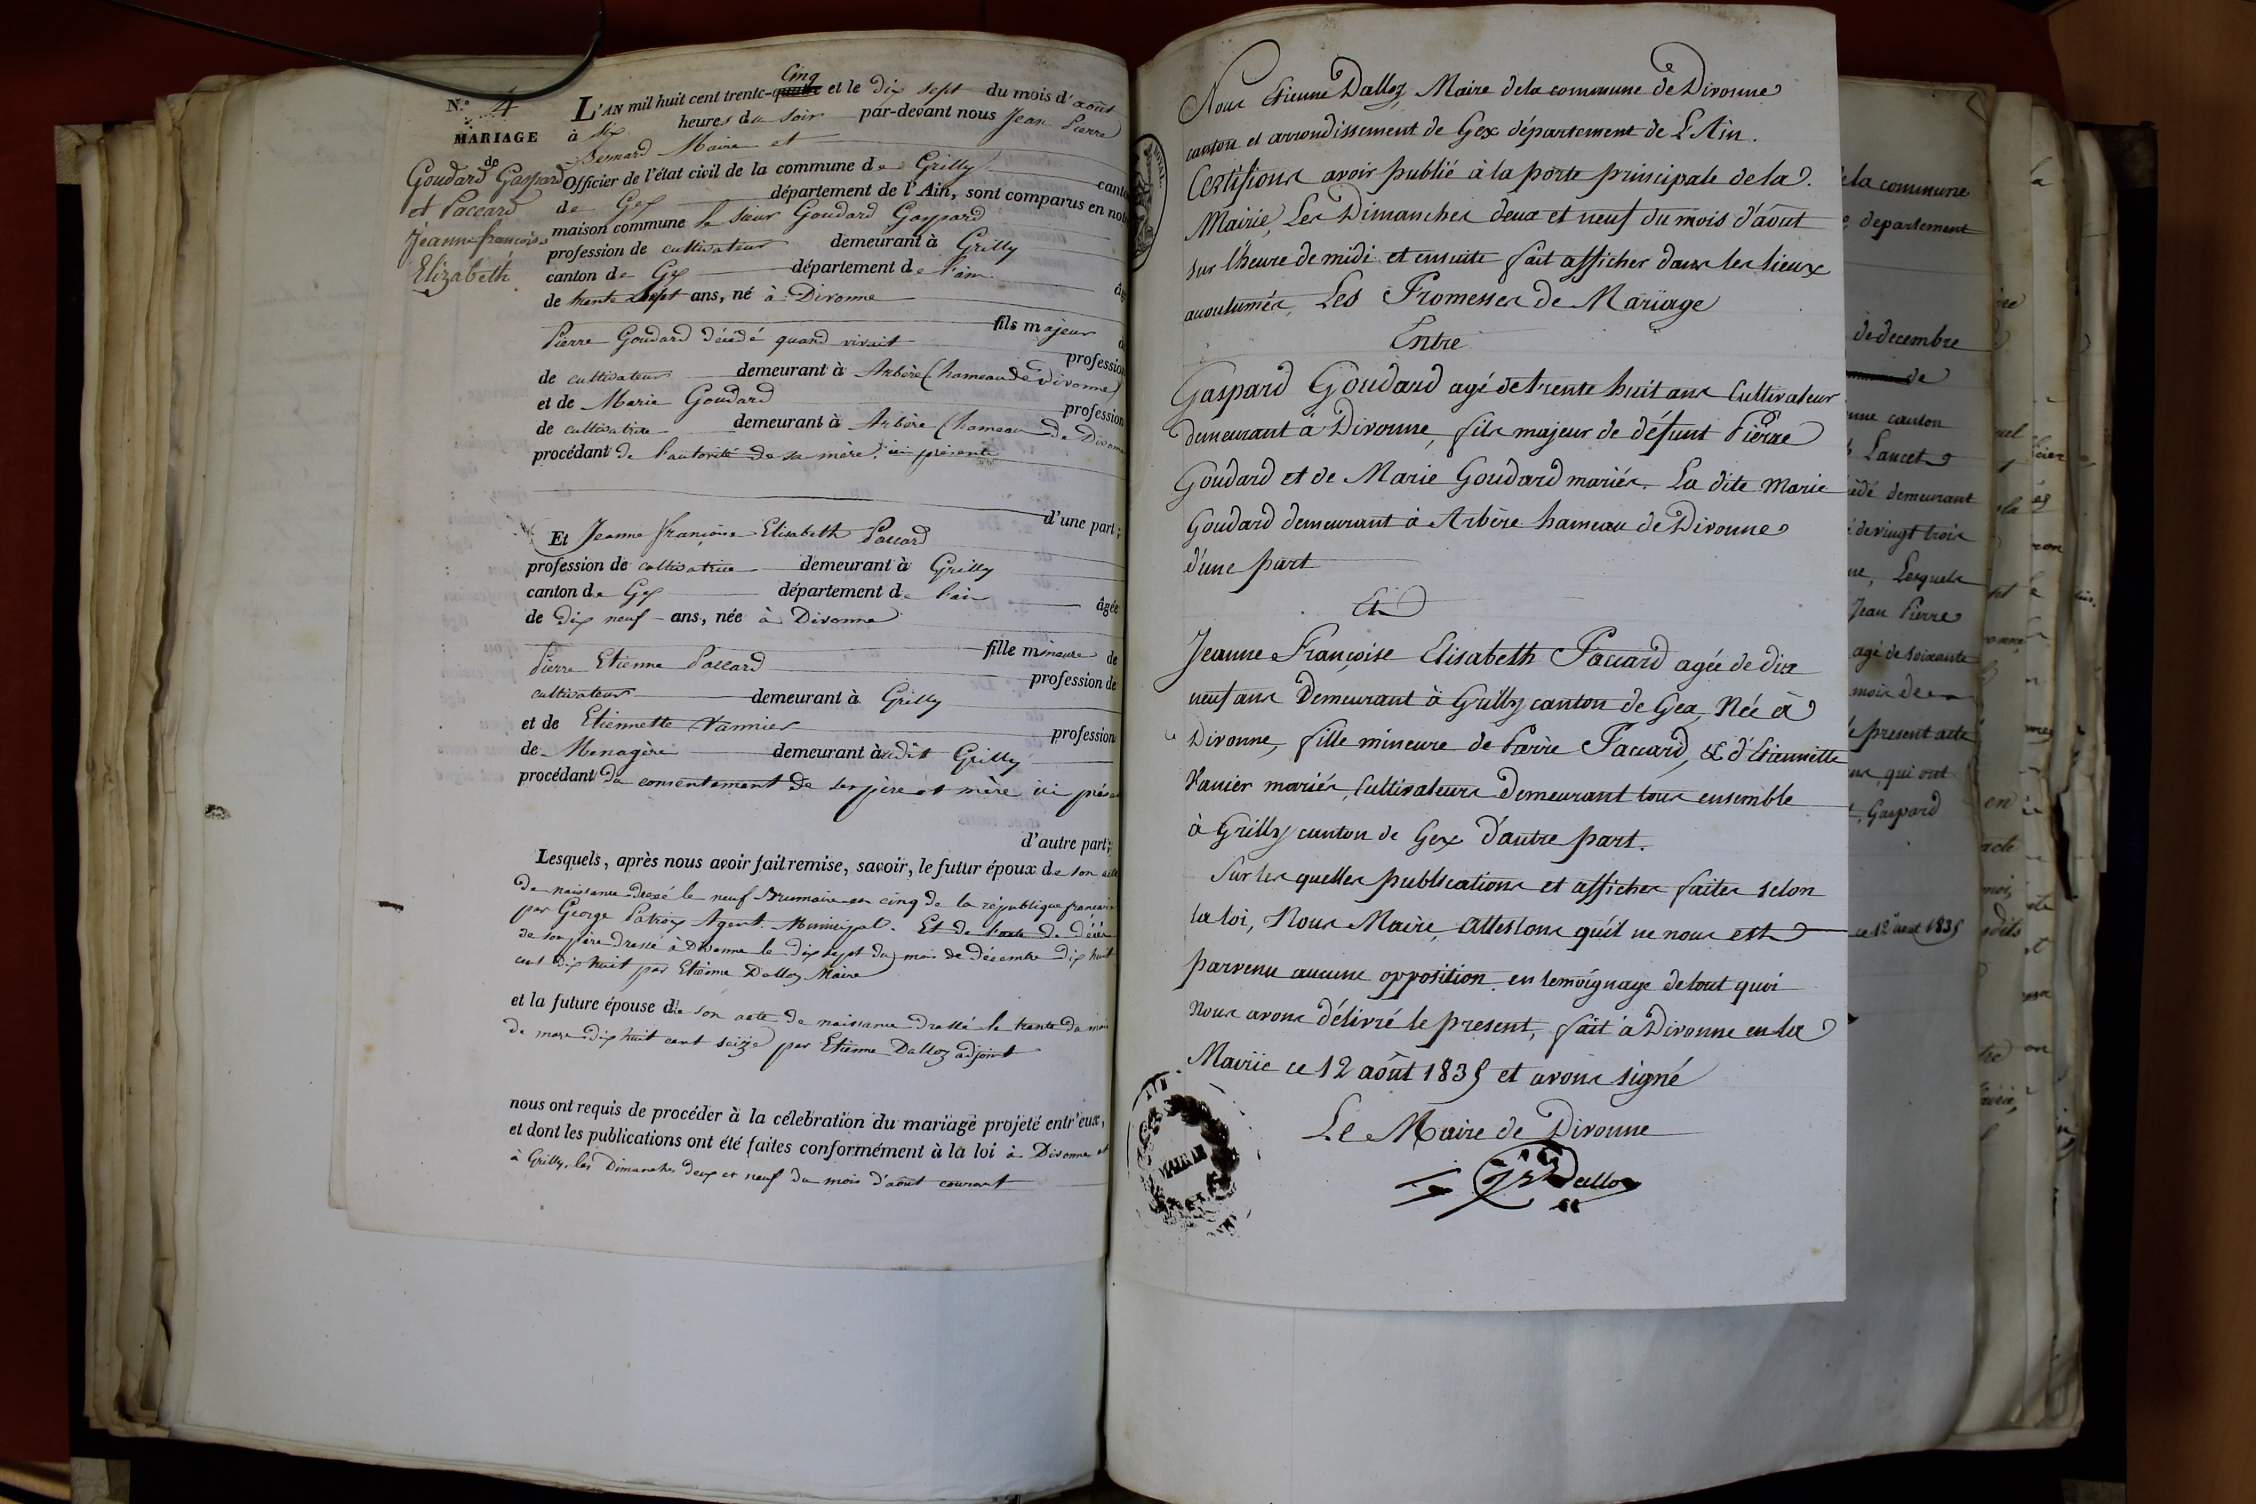 N.° 4
MARIAGE
de
Goudard Gaspard
et Paccard
Jeanne françoise
Elizabeth
L'AN mil huit cent trente-quatre Cinq et le dix sept du mois d'août
à six heures du soir par-devant nous Jean Pierre
Bernard Maire et
Officier de l'état civil de la commune de Grilly canto
de Gex département de l'Ain, sont comparus en notre
maison commune le sieur Goudard Gaspard
profession de cultivateur demeurant à Grilly
canton de Gex département de l'ain âgé
de trente sept ans, né à Divonne
fils majeur de
Pierre Goudard décédé quand vivait profession
de cultivateur demeurant à Arbère (hameau de Divonne)
et de Marie Goudard profession
de cultivatrice demeurant à Arbère (hameau de Divonne
procédant de l'autorité de sa mère ici présente
d'une part;
Et Jeanne françoise Elisabeth Paccard
profession de cultivatrice demeurant à Grilly
canton de Gex département de l'ain âgée
de dix neuf ans, née à Divonne
fille mineure de
Pierre Etienne Paccard profession de
cultivateur demeurant à Grilly
et de Etiennette Vannier profession
de Menagère demeurant audit Grilly
procédant du consentement de ses père et mère ici présen
d'autre part;
Lesquels, après nous avoir fait remise, savoir, le futur époux de son acte
de naissance dressé le neuf Brumaire an cinq de la république française
par George Patroz Agent Municipal. Et de l'acte de décès
de son père dressé à Divonne le dix sept du mois de décembre dix huit
cent dix huit par Etienne Dalloz Maire
et la future épouse de son acte de naissance dressé le trente du mois
de mars dix huit cent seize par Etienne Dalloz adjoint
nous ont requis de procéder à la célébration du mariage projeté entr'eux,
et dont les publications ont été faites conformément à la loi à Divonne et
à Grilly, les Dimanches deux et neuf du mois d'août courant
Nous Etienne Dalloz, Maire dela commune de Divonne
canton et arrondissement de Gex département de L'Ain.
Certifions avoir publié à la porte principale de la
Mairie, Les Dimanches deux et neuf du mois d'août
sur l'heure de midi et ensuite fait afficher dans les lieux
accoutumés, Les Promesses de Mariage
Entre
Gaspard Goudard agé de trente huit ans Cultivateur
demeurant à Divonne, fils majeur de défunt Pierre
Goudard et de Marie Goudard mariés. La dite Marie
Goudard demeurant à Arbère hameau de Divonne
d'une part
Et
Jeanne Françoise Elisabeth Paccard agée de dix
neuf ans Demeurant à Grilly canton de Gex, Née à
Divonne, fille mineure de Pierre Paccard, & d'Etiennette
Vanier mariés, Cultivateurs Demeurant tous ensemble
à Grilly canton de Gex d'autre part.
Sur les quelles publications et affiches faites selon
la loi, Nous Maire, attestons qu'il ne nous est
parvenu aucune opposition en temoignage de tout quoi
Nous avons délivré le present, fait à Divonne en la
Mairie ce 12 août 1835 et avons signé
Le Maire de Divonne
Dalloz
MAIRIE
de la commune
departement
de decembre
de
canton
Lancet
demeurant
de vingt trois
Lesquels
Jean Pierre
agé de soixante
mois de
le present acte
qui ont
Gaspard
ce 12 août 1835